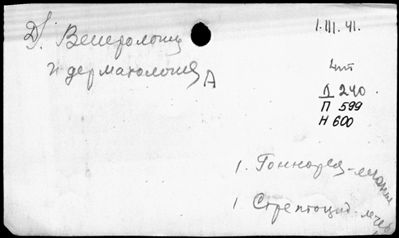 Д. Венерология
и дерматология А
1.III.41.
Л 240
П 599
Н 600
1. Гоннорея-лечен
1 Стрептоцид-лечен